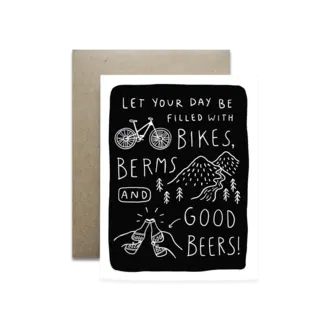 LET YOUR DAY BE
FILLED WITH
BIKES,
BERMS
AND
GOOD
BEERS!